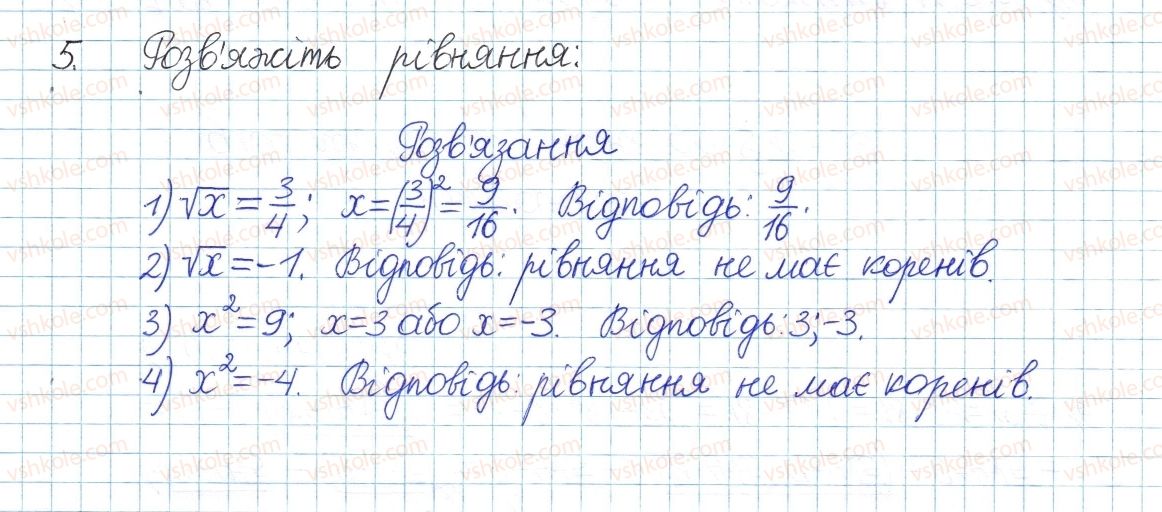 5. Розв'яжіть рівняння:
Розв'язання
1) √x = 3/4; x = (3/4)² = 9/16. Відповідь: 9/16.
2) √x = -1. Відповідь: рівняння не має коренів.
3) x² = 9; x = 3 або x = -3. Відповідь: 3; -3.
4) x² = -4. Відповідь: рівняння не має коренів.